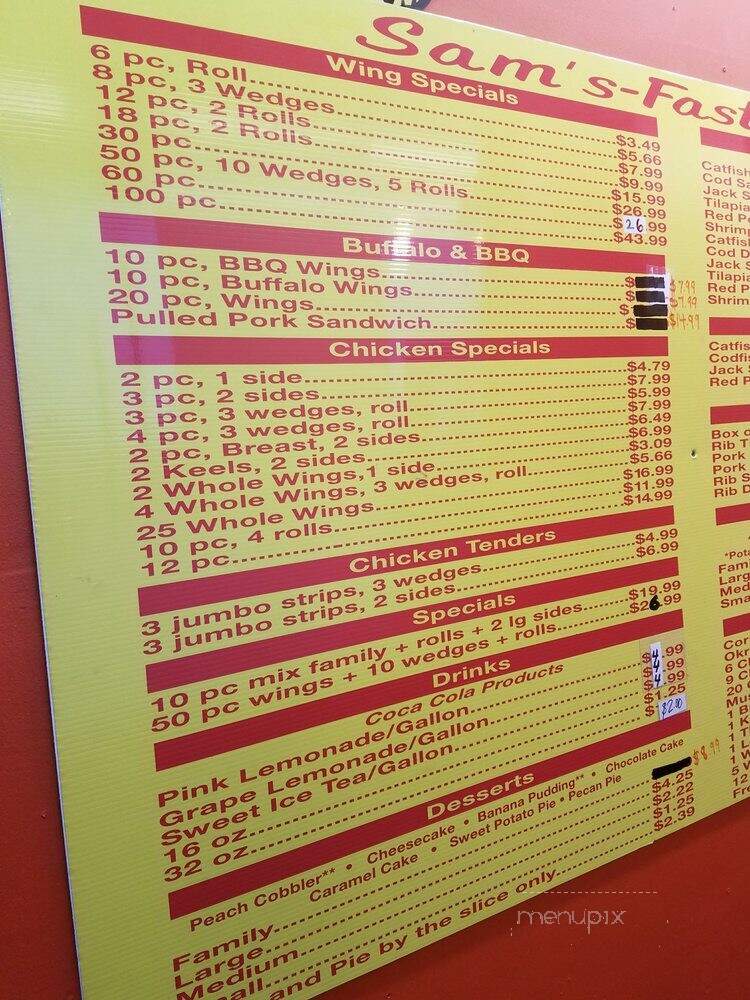 Sam's-Fast
Wing Specials
6 pc, Roll $3.49
8 pc, 3 Wedges $5.66
12 pc, 2 Rolls $7.99
18 pc, 2 Rolls $9.99
30 pc $15.99
50 pc, 10 Wedges, 5 Rolls $26.99
60 pc $26.99
100 pc $43.99
Buffalo & BBQ
10 pc, BBQ Wings $ $7.99
10 pc, Buffalo Wings $ $7.99
20 pc, Wings $ $14.99
Pulled Pork Sandwich $
Chicken Specials
2 pc, 1 side $4.79
3 pc, 2 sides $7.99
3 pc, 3 wedges, roll $5.99
4 pc, 3 wedges, roll $7.99
2 pc, Breast, 2 sides $6.49
2 Keels, 2 sides $6.99
2 Whole Wings,1 side $3.09
4 Whole Wings, 3 wedges, roll $5.66
25 Whole Wings $16.99
10 pc, 4 rolls $11.99
12 pc $14.99
Chicken Tenders
3 jumbo strips, 3 wedges $4.99
3 jumbo strips, 2 sides $6.99
Specials
10 pc mix family + rolls + 2 lg sides $19.99
50 pc wings + 10 wedges + rolls $26.99
Drinks
Coca Cola Products
Pink Lemonade/Gallon $4.99
Grape Lemonade/Gallon $4.99
Sweet Ice Tea/Gallon $4.99
16 oz $1.25
32 oz $2.00
Desserts
Peach Cobbler** • Cheesecake • Banana Pudding** • Chocolate Cake
Caramel Cake • Sweet Potato Pie • Pecan Pie
Family $8.99
Large $4.25
Medium $2.22
$1.25
and Pie by the slice only $2.39
Catfish
Cod
Jack
Tilapia
Red
Shrimp
Catfis
Cod
Jack
Tilapi
Red P
Shrim
Catfis
Codfis
Jack
Red P
Box
Rib
Pork
Pork
Rib
Rib
*Pota
Fami
Larg
Med
Sma
menupix